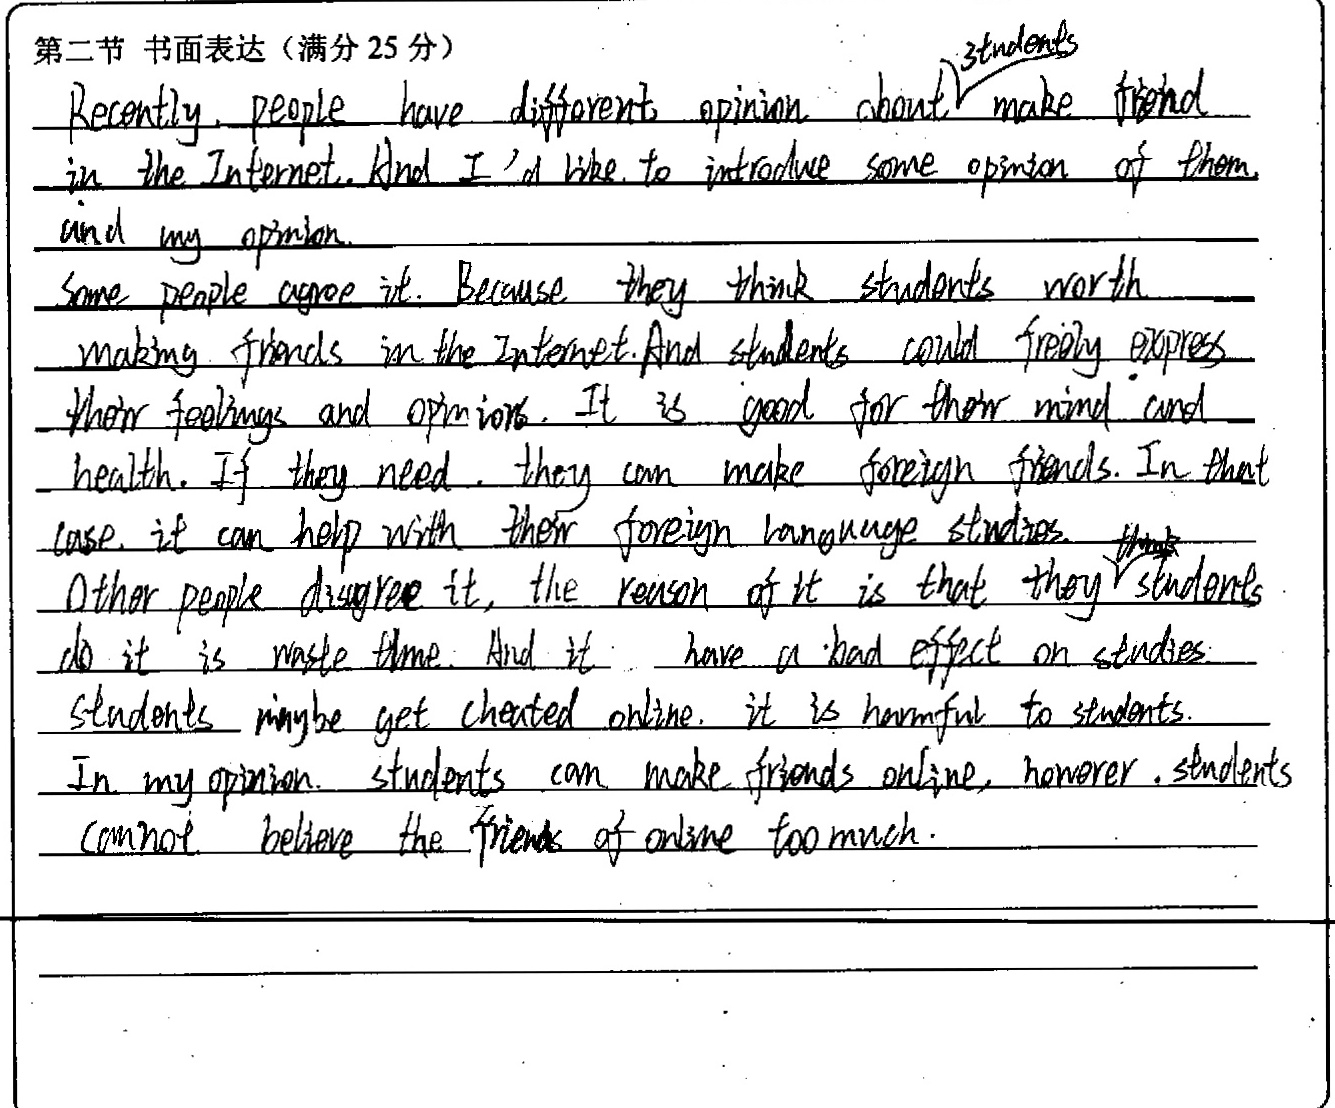 第二节 书面表达（满分 25 分）
students
Recently, people have different opinion about make friend
in the Internet. And I'd like to introduce some opinion of them.
and my opinion.
Some people agree it. Because they think students worth
making friends in the Internet. And students could freely express
their feelings and opinions. It is good for their mind and
health. If they need, they can make foreign friends. In that
case, it can help with their foreign language studies.
think
Other people disagree it, the reason of it is that they students
do it is waste time. And it have a bad effect on studies.
students maybe get cheated online. it is harmful to students.
In my opinion. students can make friends online, however, students
cannot believe the friends of online too much.